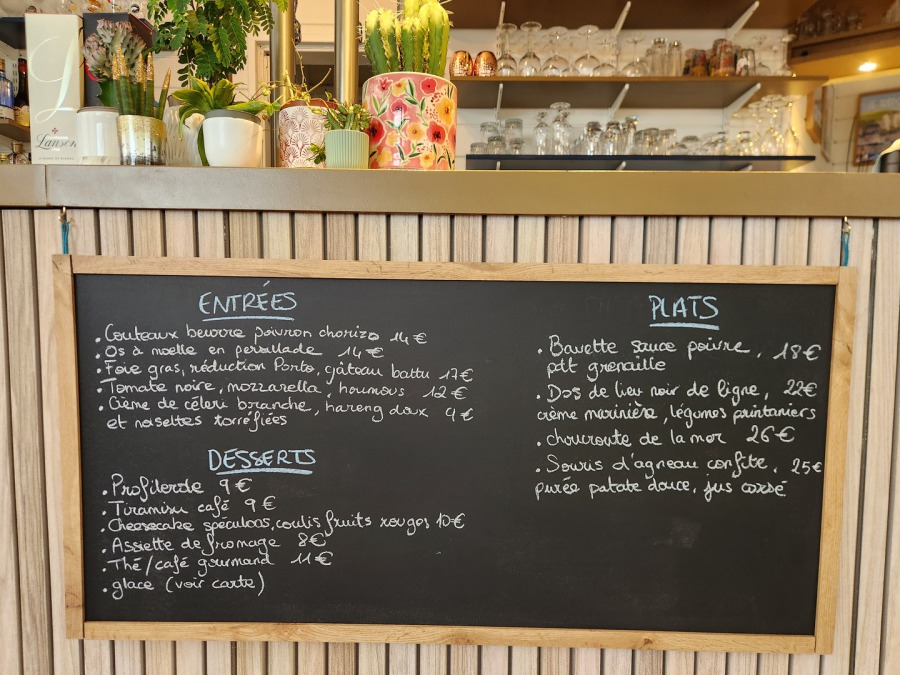 Lanson
ENTRÉES
. Couteaux beurre poivron chorizo 14€
. Os à moelle en persillade 14€
. Foie gras, réduction Porto, gâteau battu 17€
. Tomate noire, mozzarella, houmous 12€
. Crème de céleri branche, hareng doux 9€
et noisettes torréfiées
DESSERTS
. Profiterole 9€
. Tiramisu café 9€
. Cheesecake spéculoos, coulis fruits rouges 10€
. Assiette de fromage 8€
. Thé/café gourmand 11€
. glace (voir carte)
PLATS
. Bavette sauce poivre, 18€
ptt grenaille
. Dos de lieu noir de ligne, 22€
crème marinière, légumes printaniers
. choucroute de la mer 26€
. Souris d'agneau confite, 25€
purée patate douce, jus corsé